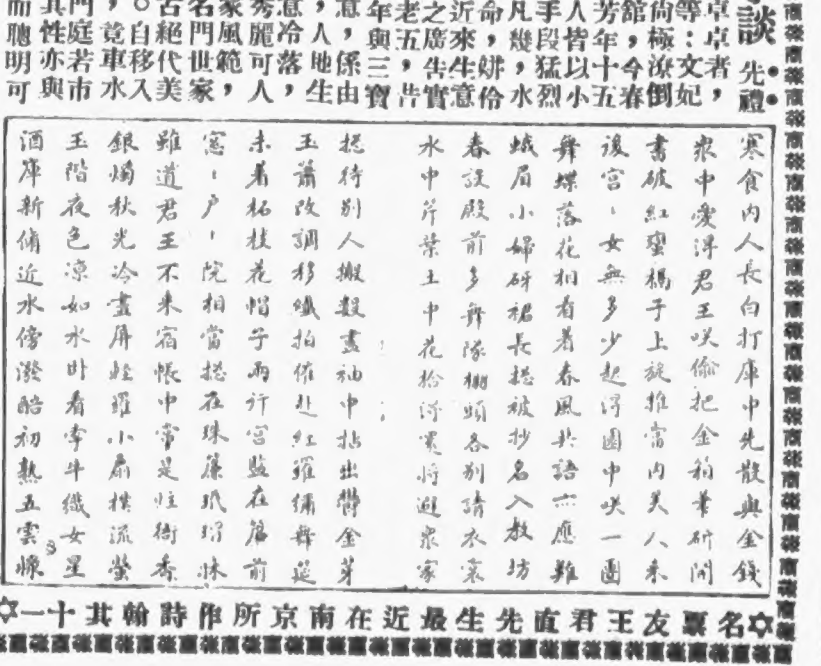 談 先禮
卓卓者，
等：文妃
尙極潦倒
舘，今春
芳年十五
人皆以小
手段猛烈
凡幾，水
命，姘伶
近來生意
之廣告實
老五，昔
年與三寶
意，係由
，人地生
意冷落，
秀麗可人
家風範，
名門世家
古絕代美
。自移入
，竟車水
門庭若市
其性亦與
而聰明可
寒食內人長白打庫中先散與金錢
衆中愛得君王咲偷把金箱筆硏開
書破紅蠻槅子上旋推當內美人來
後宮ヽ女無多少起得園中咲一團
舞蝶落花相看着春風共語亦應難
蛾眉小婦砑裙長揔被抄名入教坊
春設殿前多舞隊棚頭各別請衣裳
水中芹葉土中花拾得還將避衆家
揔待別人搬數盡袖中拈出鬱金芽
玉簫改調移纖拍催赴紅羅繡舞筵
未着柘枝花帽子兩行宮監在簾前
窓ヽ戶ヽ院相當揔在珠簾玳瑁牀
雖道君王不來宿帳中常是炷衙香
銀燭秋光冷畫屏輕羅小扇撲流螢
玉階夜色凉如水卧看牽牛織女星
酒庫新脩近水傍潑醅初熟五雲漿
☆名票友王君直先生最近在南京所作詩翰其十一☆